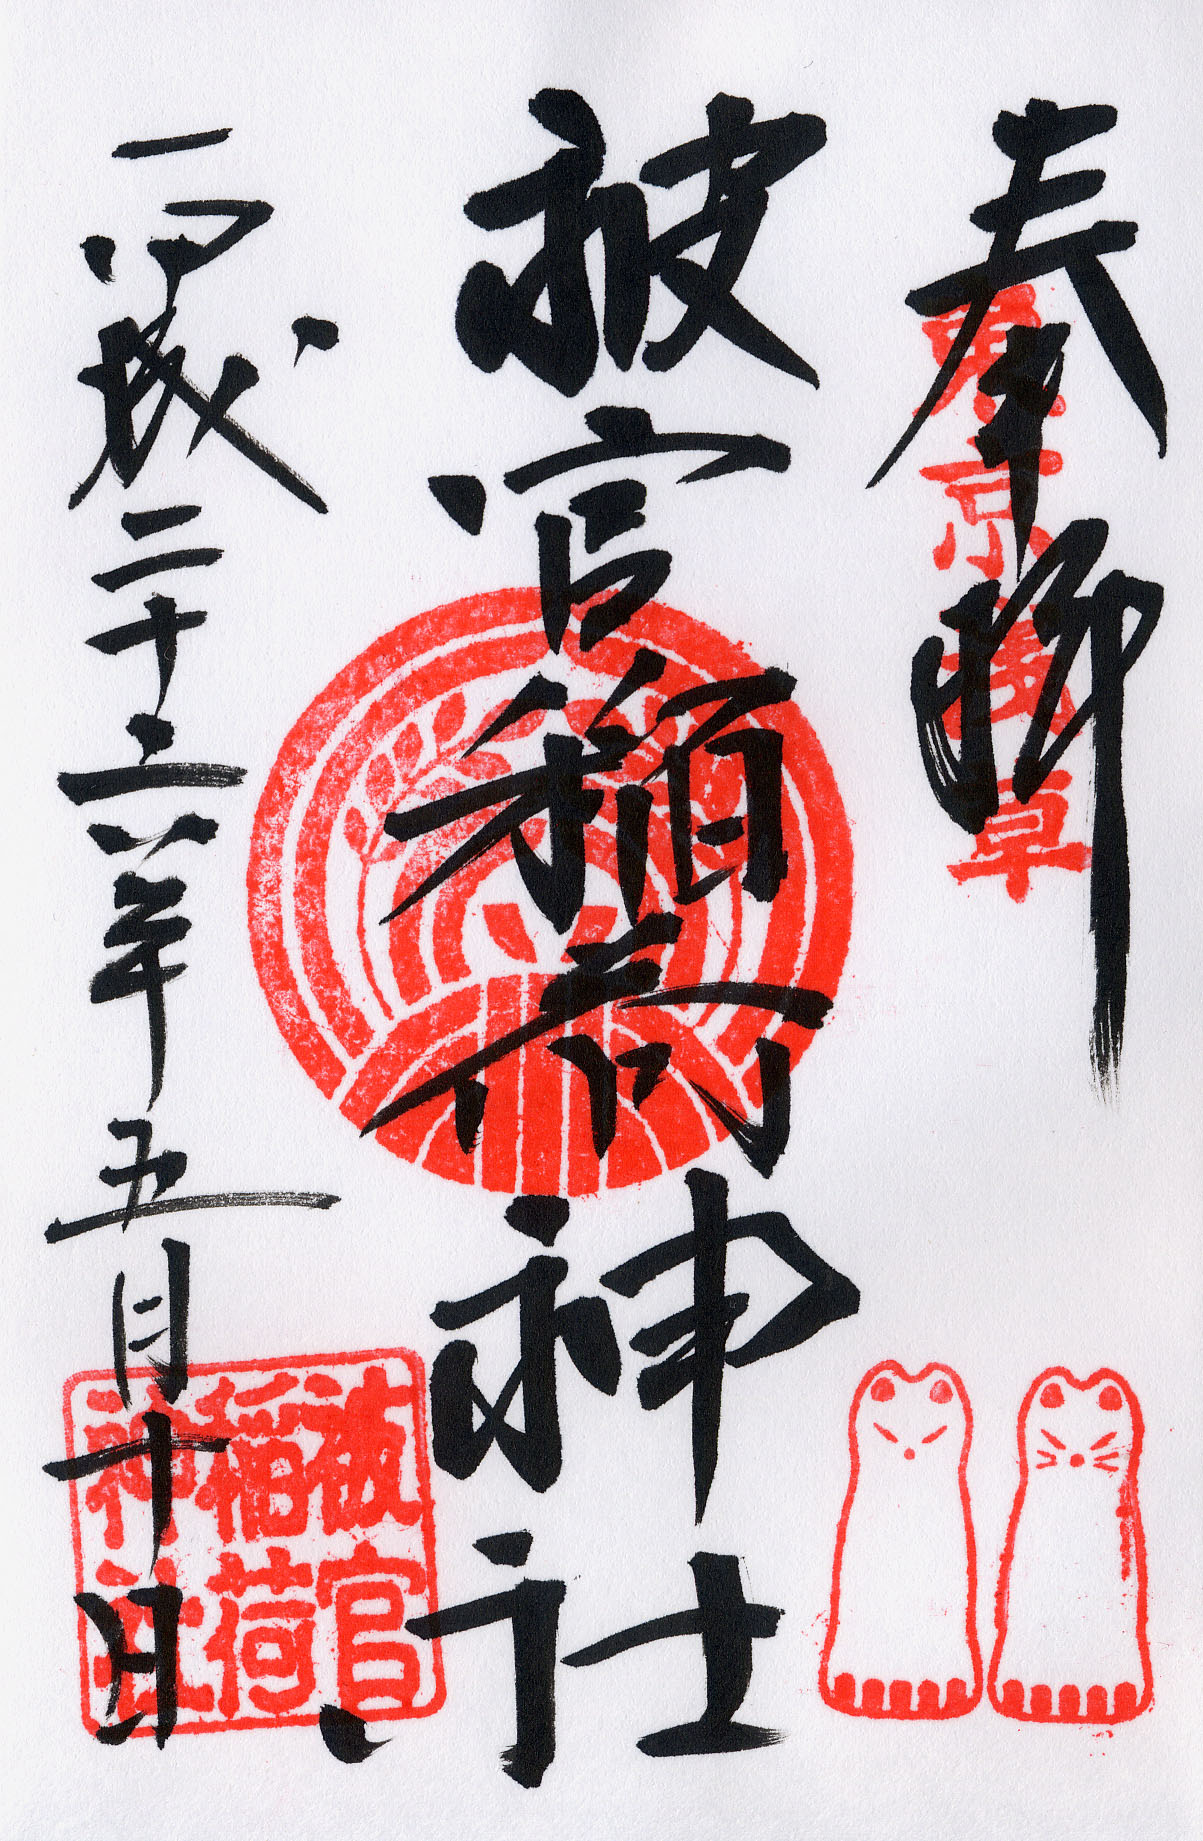 奉拝
東京浅草
被官稲荷神社
平成二十六年五月十日
被官
稲荷
神社